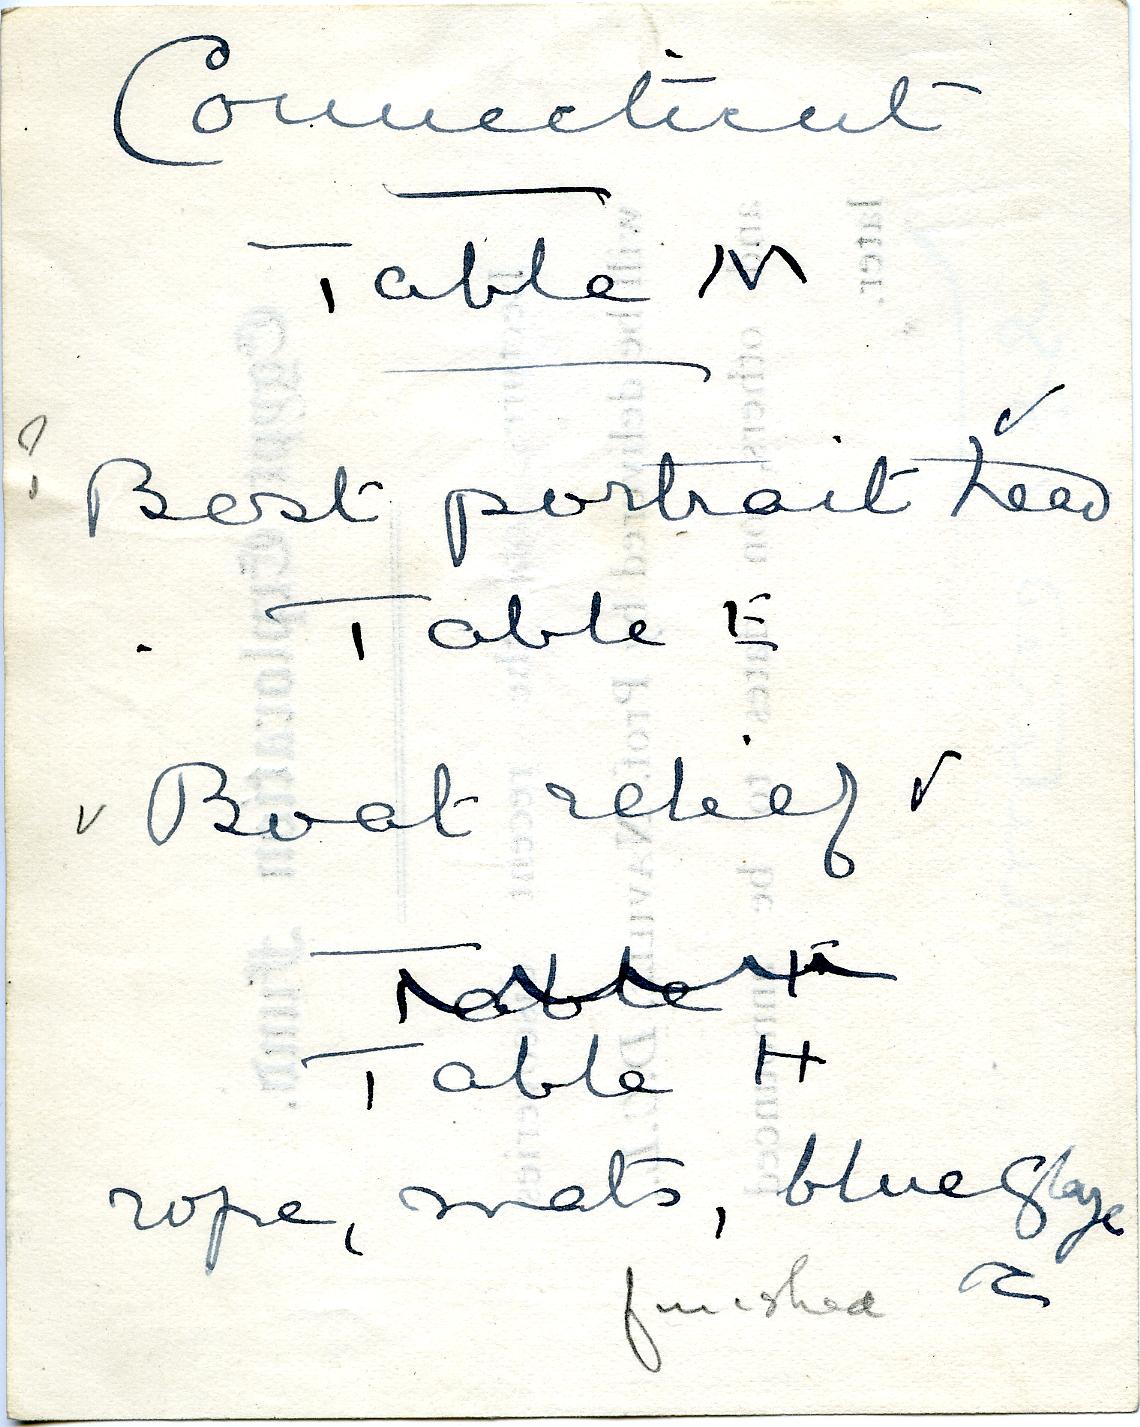 Connecticut
Table M
? Best portrait head ✓
Table E
✓ Boat relief ✓
Table H
rope, mats, blue glaze
finished